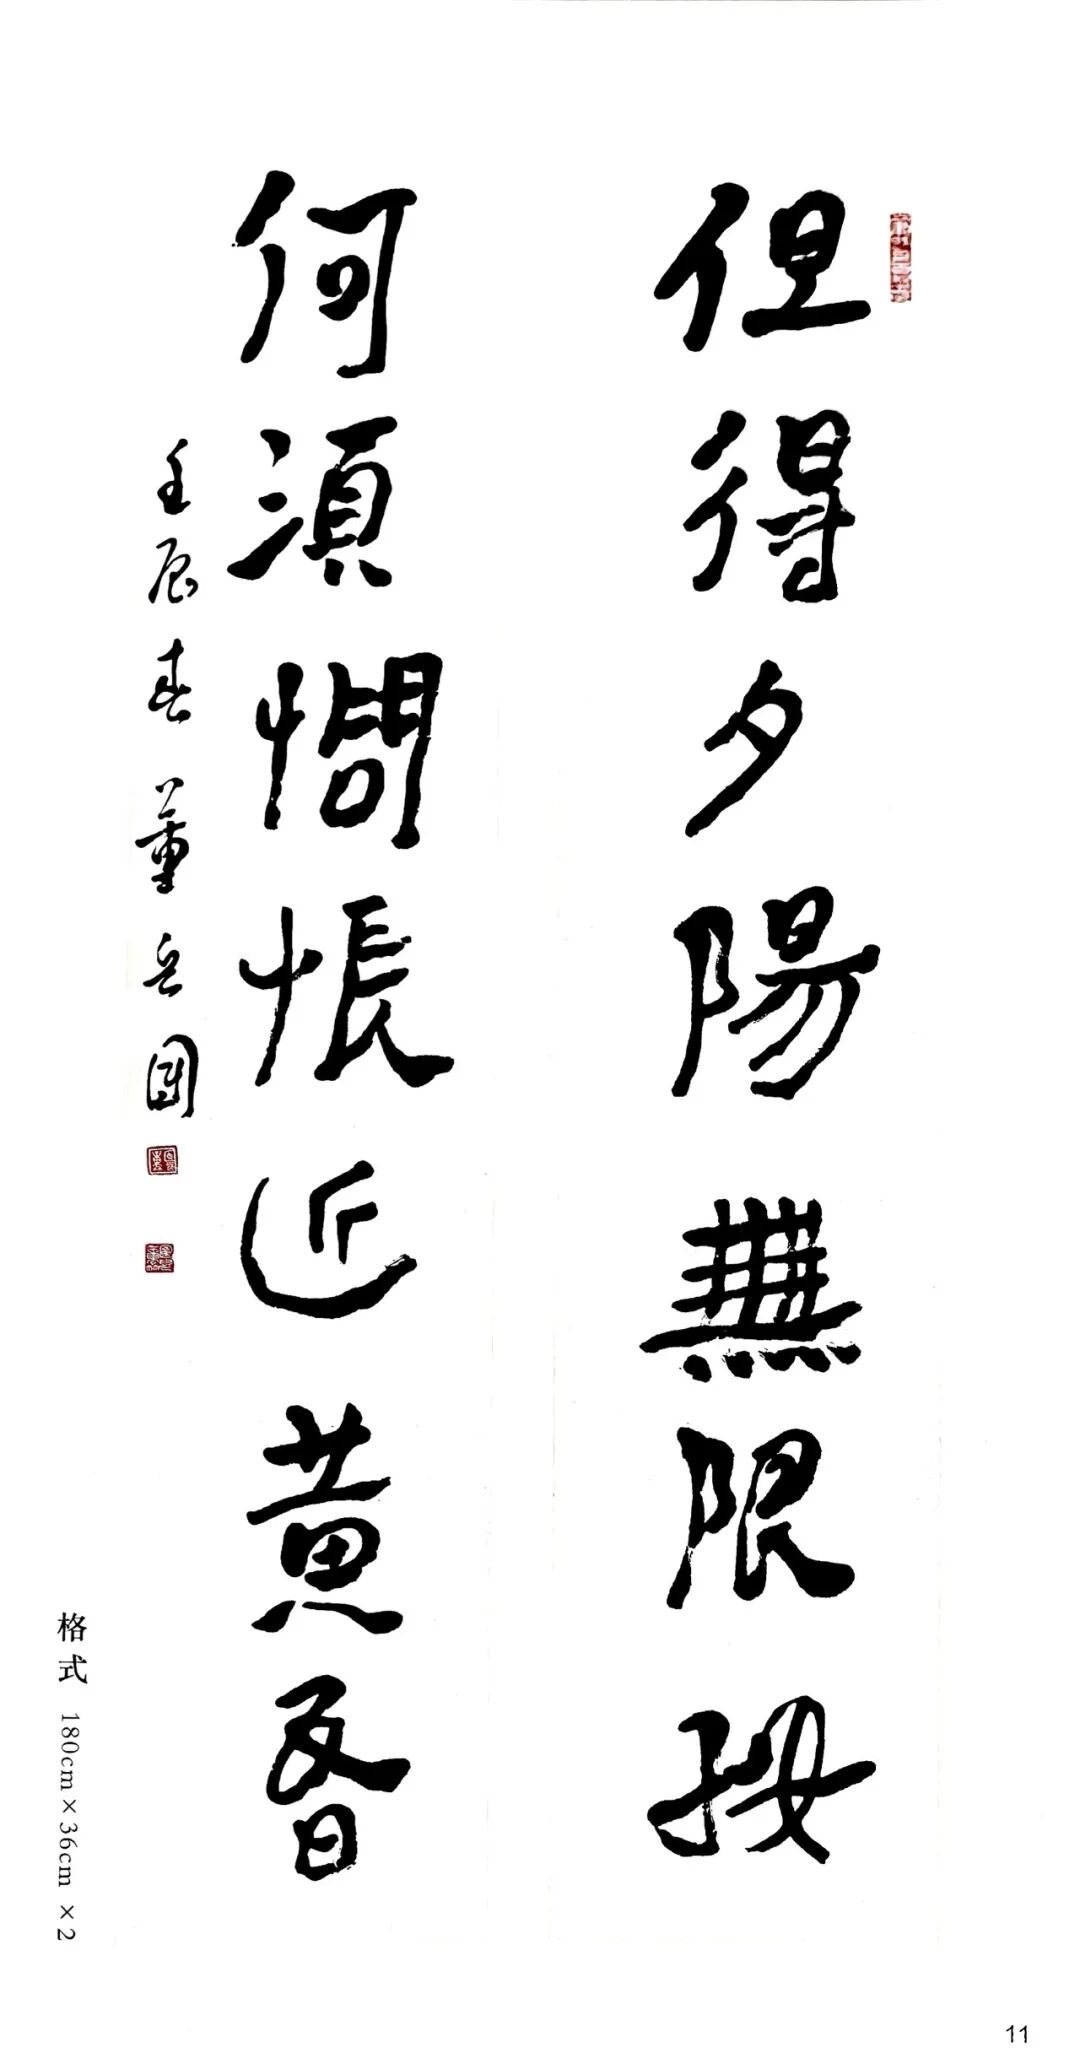 但得夕陽無限好
何須惆悵近黃昏
壬辰春 董岳國
格式 180cm×36cm ×2
11